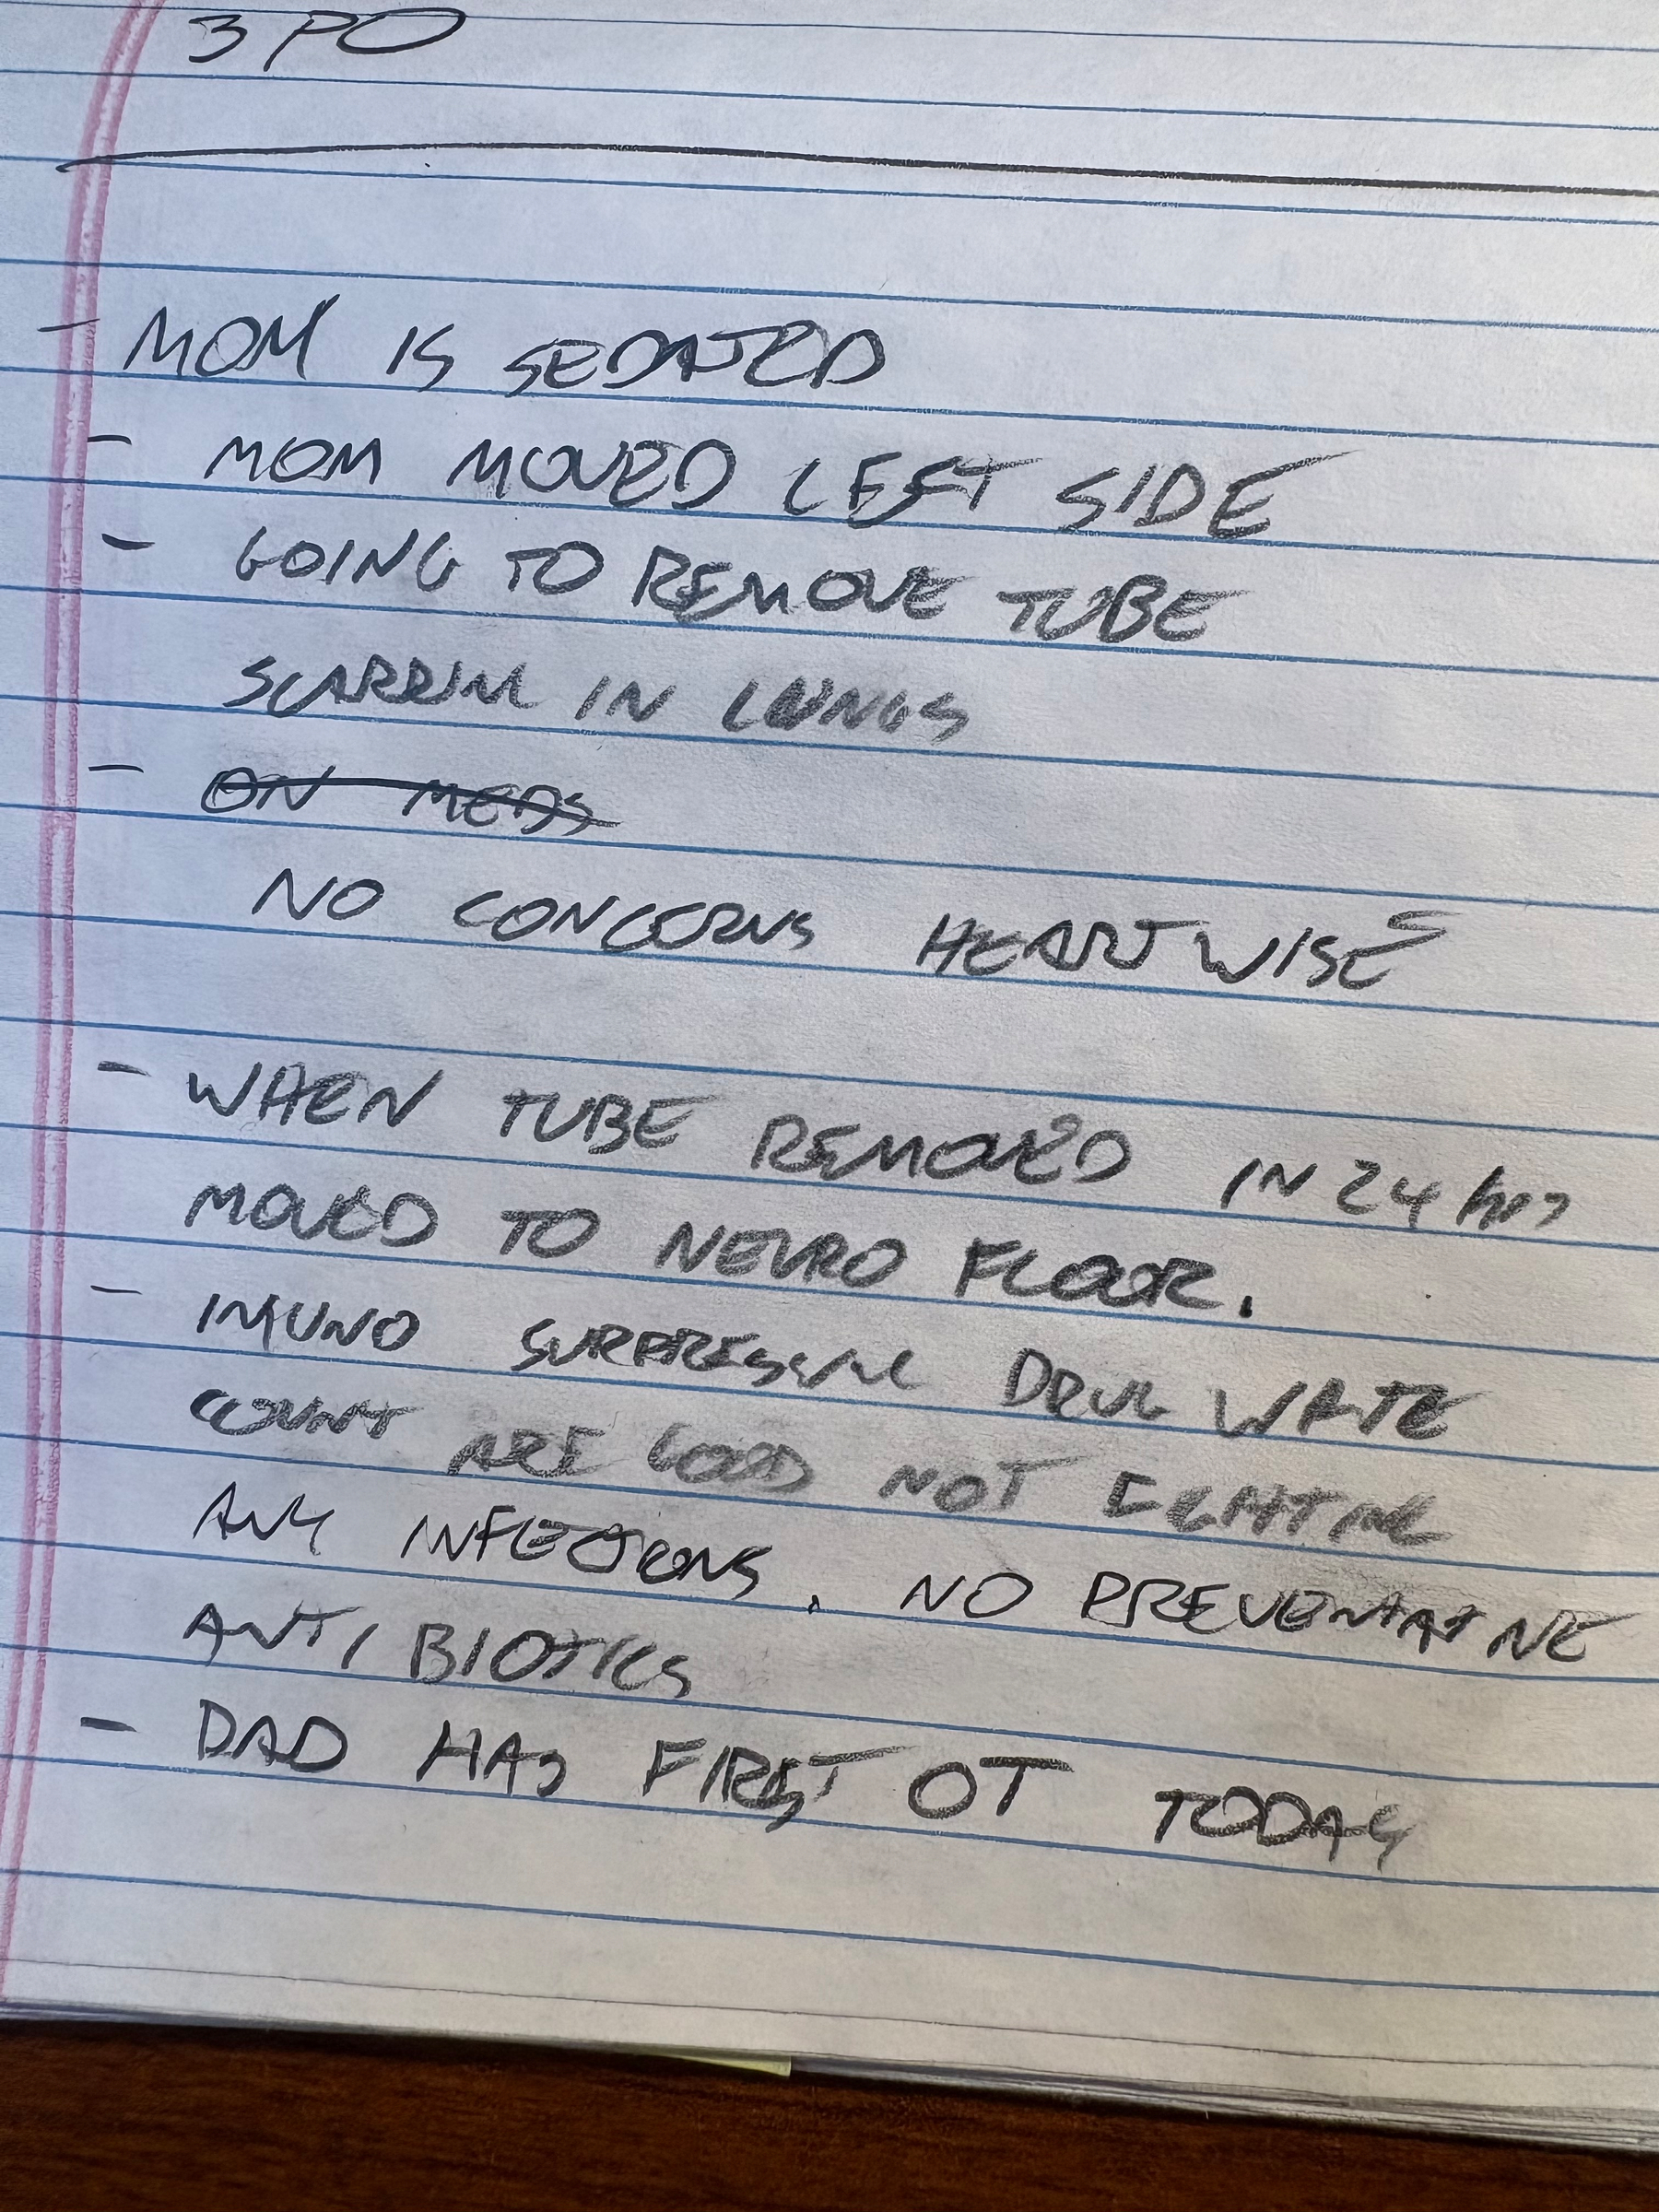 3PO
- MOM IS SEDATED
- MOM MOVED LEFT SIDE
- GOING TO REMOVE TUBE
SCARRING IN LUNGS
- ON MEDS
NO CONCERNS HEARTWISE
- WHEN TUBE REMOVED IN 24 hrs
MOVED TO NEURO FLOOR.
- IMUNO SURPRESSING DRUG WHTE
COUNT ARE GOOD NOT FIGHTING
ANY INFECTIONS. NO PREVENTATIVE
ANTI BIOTICS
- DAD HAS FIRST OT TODAY